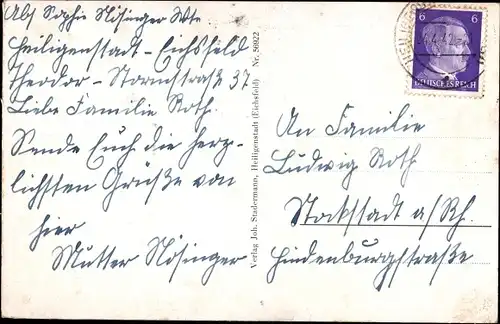 Abs Sophie Nösinger Wtw
Heiligenstadt-Eichsfeld
Theodor-Stormstraße 37
Liebe Familie Roth.
Sende Euch die herz-
lichsten Grüße von
hier
Mutter Nösinger
Verlag Joh. Stadermann, Heiligenstadt (Eichsfeld) Nr. 56922
6 6
DEUTSCHES REICH
An Familie
Ludwig Roth
Stockstadt a/Rh.
Hindenburgstraße